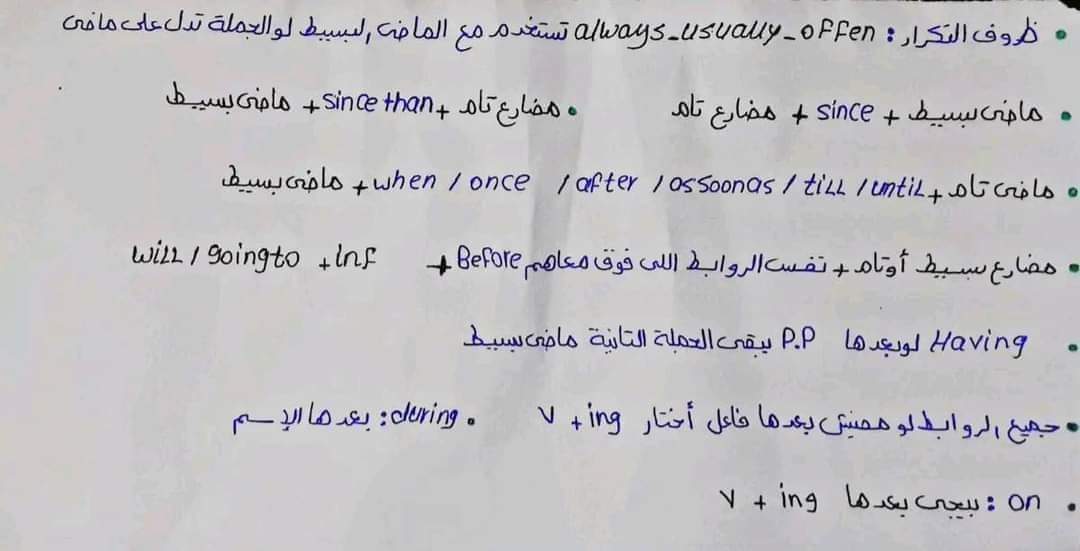 • ظروف التكرار : always_usually_offen تستخدم مع الماضى البسيط لو الجملة تدل على ماضى
• ماضى بسيط + since + مضارع تام • مضارع تام + since than + ماضى بسيط
• ماضى تام + when / once / after / assoonas / till / until + ماضى بسيط
• مضارع بسيط أو تام + نفس الروابط اللى فوق معاهم Before + will / going to + Inf
• Having لو بعدها P.P يبقى الجملة التانية ماضى بسيط
• جميع الروابط لو مفيش بعدها فاعل أختار V + ing • during : بعدها الإسم
• on : بيجى بعدها V + ing